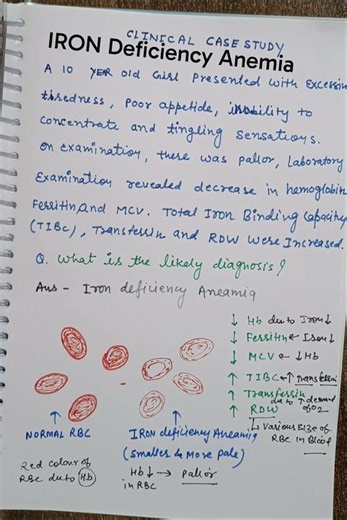 CLINICAL CASE STUDY
IRON Deficiency Anemia
A 10 YER old Girl Presented with Excessiv
tiredness, Poor appetide, inability to
concentrate and tingling sensations.
On examination, there was pallor, Laboratory
Examination revealed decrease in hemoglobin
Ferritin, and MCV. Total Iron Binding Capacity
(TIBC), Transferrin and RDW were Increased.
Q. What is the likely diagnosis?
Ans - Iron deficiency Aneamia
↓ Hb due to Iron↓
↓ Ferritin ← Iron↓
↓ MCV ← ↓Hb
↑ TIBC ← ↑ Transferrin
↑ Transferrin due to ↑ demand of O2
↑ RDW
↳ Various size of
RBC in Blood
↑
NORMAL RBC
Red colour of
RBC due to Hb
↑
IRON deficiency Aneamia
(Smaller & More Pale)
Hb↓ → Pallor
in RBC